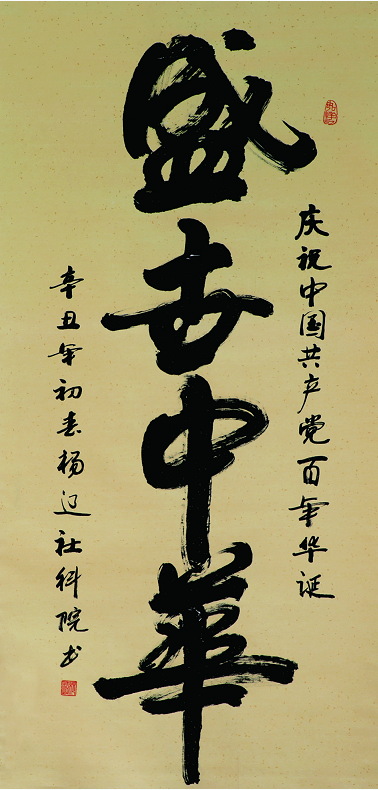 庆祝中国共产党百年华诞
盛世中華
辛丑年初春杨 社科院书